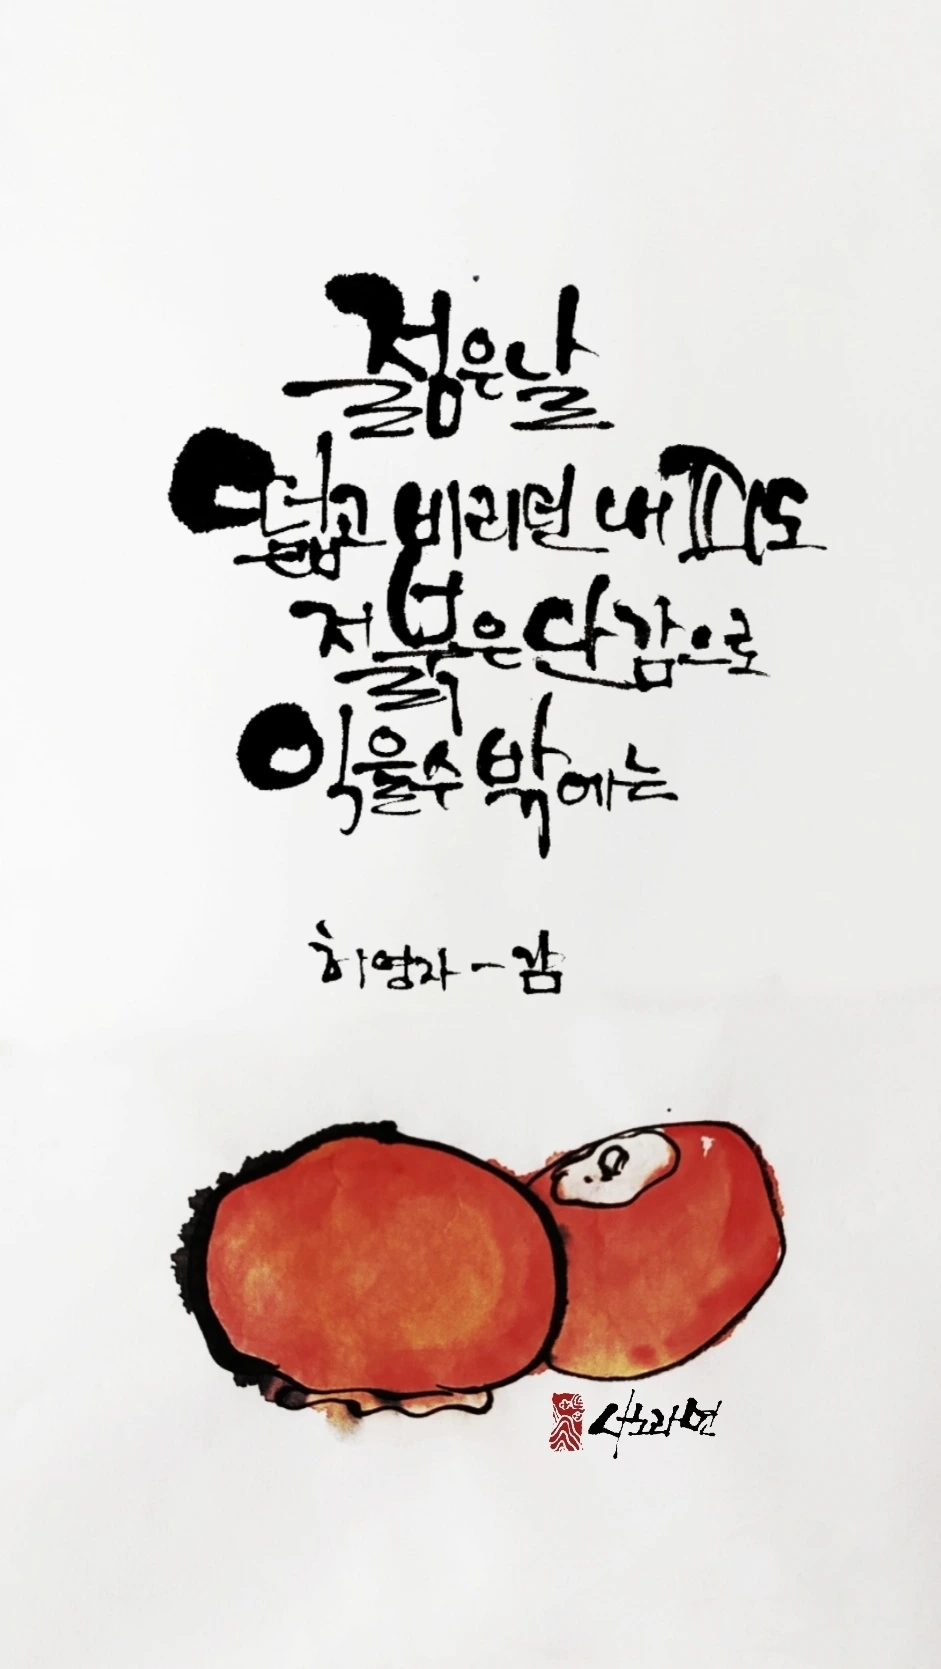 젊은날
떫고 비리던 내 피도
저 붉은 단감으로
익을수 밖에는
하영자 - 감